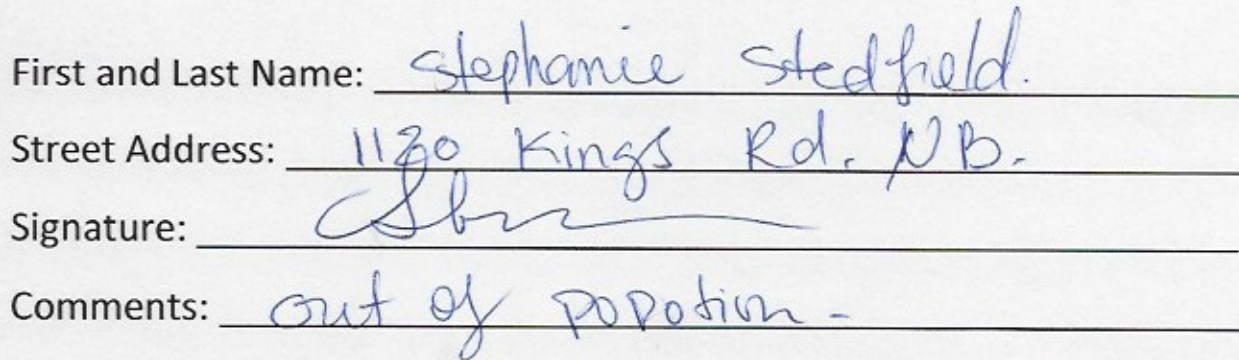 First and Last Name: Stephanie Stedfield.
Street Address: 1130 Kings Rd. NB.
Signature:
Comments: out of popotion -